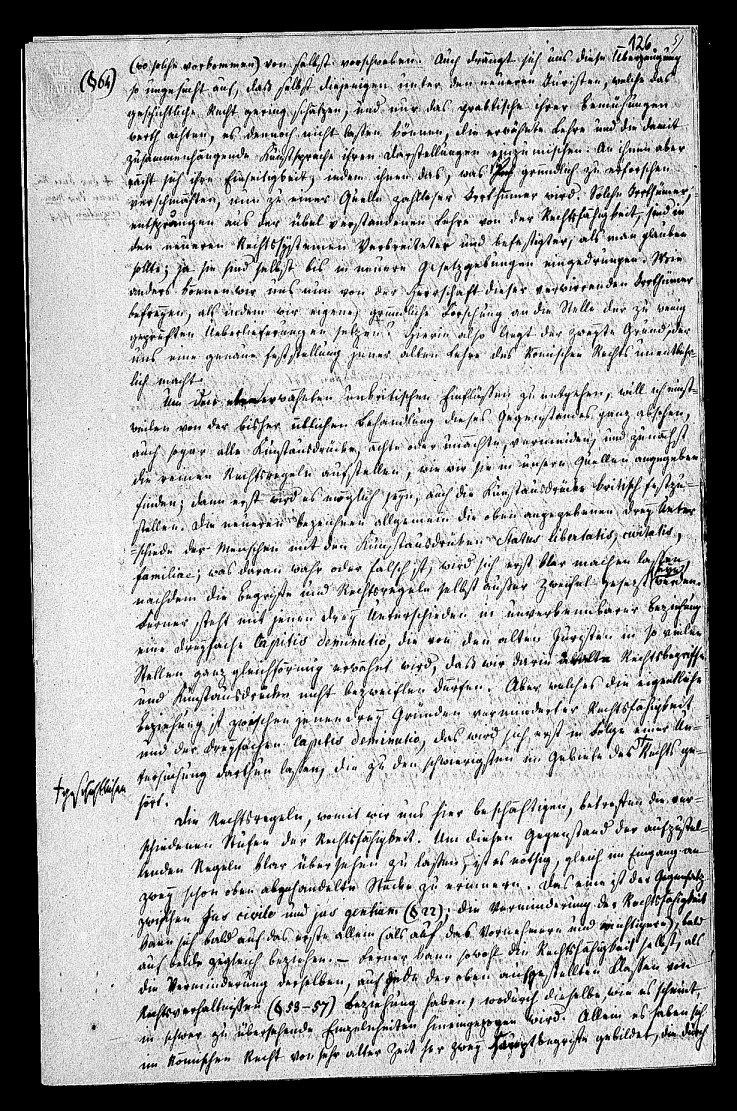 126
(§64)
(wo solche vorkommen) von selbst vorschweben. Auch drängt sich uns diese Überzeugung
so ungesucht auf, daß selbst diejenigen unter den neueren Juristen, welche das
geschichtliche Recht gering schätzen, und nur das praktische ihrer Bemühungen
werth achten, es dennoch nicht lassen können, die erwähnte Lehre und die damit
zusammenhängende Kunstsprache ihren Darstellungen einzumischen. An ihnen aber
rächt sich ihre Einseitigkeit, indem ihnen das, was sie gründlich zu erforschen
verschmähten, nun zu einer Quelle zahlloser Irrthümer wird. Solche Irrthümer,
entsprungen aus der übel verstandenen Lehre von der Rechtsfähigkeit, sind in
den neueren Rechtssystemen verbreiteter und befestigter, als man glauben
sollte; ja sie sind selbst bis in neuere Gesetzgebungen eingedrungen. Wie
anders können wir uns nun von der Herrschaft dieser verwirrenden Irrthümer
befreyen, als indem wir eigene, gründliche Forschung an die Stelle der zu wenig
geprüften Ueberlieferungen setzen? Hierin also liegt der zweyte Grund, der
uns eine genaue Feststellung jener alten Lehre des Römischen Rechts unentbehr-
lich macht.
Um den erwähnten unkritischen Einflüssen zu entgehen, will ich einst-
weilen von der bisher üblichen Behandlung dieses Gegenstandes ganz absehen,
auch sogar alle Kunstausdrücke, ächte oder unächte, vermeiden, und zunächst
die reinen Rechtsregeln aufstellen, wie wir sie in unsern Quellen angegeben
finden; dann erst wird es möglich seyn, auch die Kunstausdrücke kritisch festzu-
stellen. Die neueren bezeichnen allgemein die oben angegebenen drey Unter
=schiede der Menschen mit den Kunstausdrücken Status libertatis, civitatis,
familiae; was daran wahr oder falsch ist, wird sich erst klar machen lassen,
nachdem die Begriffe und Rechtsregeln selbst außer Zweifel gesetzt seyn werden.
Ferner steht mit jenen drey Unterschieden in unverkennbarer Beziehung
eine dreyfache Capitis deminutio, die von den alten Juristen in so vielen
Stellen ganz gleichförmig erwähnt wird, daß wir darin uralte Rechtsbegriffe
und Kunstausdrücke nicht bezweiflen dürfen. Aber welches die eigentliche
Beziehung ist zwischen jenen drey Gründen verminderter Rechtsfähigkeit
und der dreyfachen Capitis deminutio, das wird sich erst in Folge einer Un-
tersuchung darthun lassen, die zu den schwierigsten im Gebiete des † Rechts ge-
hört.
† geschichtlichen
Die Rechtsregeln, womit wir uns hier beschäftigen, betreffen die ver-
schiedenen Stufen der Rechtsfähigkeit. Um diesen Gegenstand der aufzustel-
lenden Regeln klar übersehen zu lassen, ist es nöthig, gleich im Eingang an
zwey schon oben abgehandelte Stücke zu erinnern. Das eine ist der Gegensatz
zwischen Jus civile und jus gentium (§22); die Verminderung der Rechtsfähigkeit
kann sich bald auf das erste allein (als auf das Vornehmere und wichtigere), bald
auf beide zugleich beziehen. – Ferner kann sowohl die Rechtsfähigkeit selbst, als
die Verminderung derselben, auf jede der oben aufgestellten Klassen von
Rechtsverhältnissen (§53–57) Beziehung haben, wodurch dieselbe, wie es scheint,
in schwer zu übersehende Einzelnheiten hineingezogen wird. Allein es haben sich
im Römischen Recht von sehr alter Zeit her zwey Hauptbegriffe gebildet, die durch